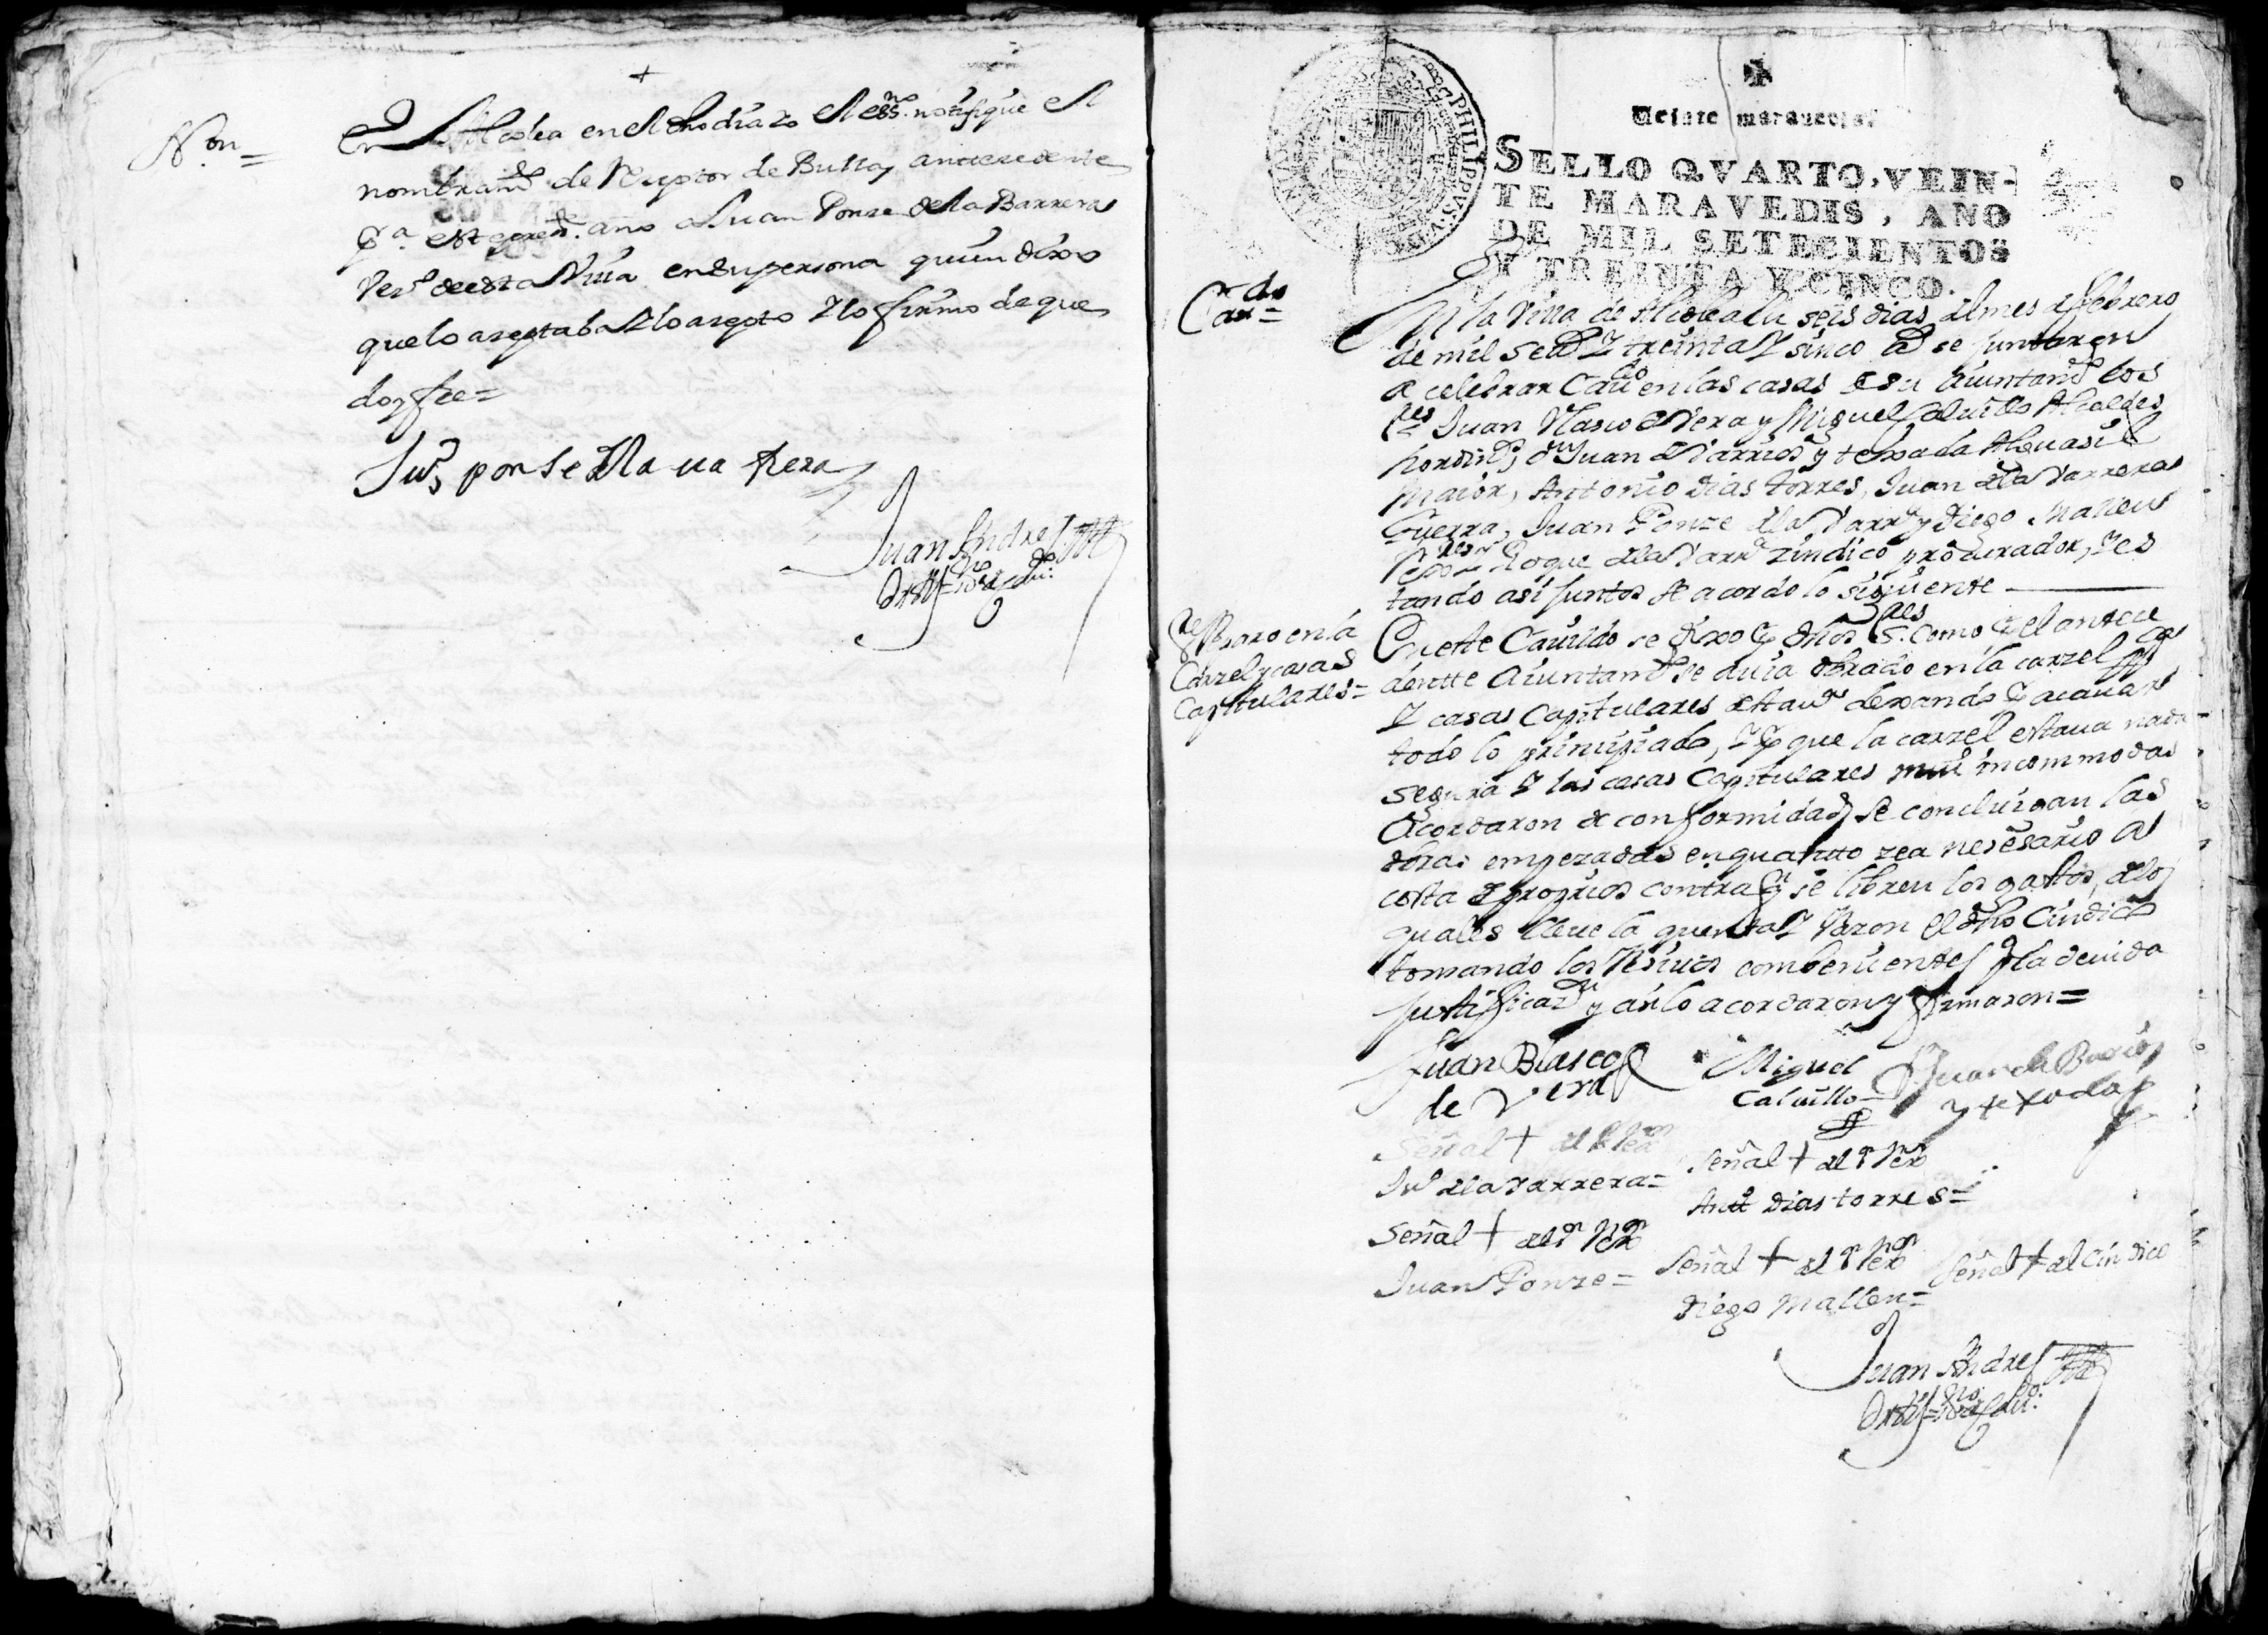 +
N.on =
En Alcolea en el dho dia yo el ess.no notifique el
nombram.to de Reuptor de Bullas anttesedente
p.a este pres.te año a Juan Ponse de la Barrera
Vez.o de esta Villa en su persona quien dixo
que lo aseptaba y lo asepto y lo firmo de que
doy fee =
Ju.o ponse de la ua Rera
Juan Andres
Ortis ss.no de cau.do
Veinte maravedis.
SELLO QVARTO, VEIN-
TE MARAVEDIS, AÑO
DE MIL SETECIENTOS
Y TREINTA Y CINCO.
PHILIPPVS V
Cau.do =
En la Villa de Alcolea en seis dias del mes de febrero
de mil set.s y treinta y sinco a.s se juntaron
a celebrar Cau.do en las casas de su Aiuntam.to los
s.res Juan Vlasco de Vera y Miguel Caluillo Alcaldes
hordin.s, d.n Juan de Varrios y texada Alguasil
maior, Antonio Dias torres, Juan de la Varrera
Guerra, Juan Ponze de la Varr.a y Diego Mallen
Rex.res y Roque de la Varr.a zindico procurador, y es
tando asi juntos se acordo lo siguiente
Reparo en la
Carzel y casas
Capitulares =
En este Cauildo se dixo p.r dhos s.res como p.r el antece
dentte Aiuntam.to se auia obrado en la carzel
y casas Capitulares desta v.a dexando p.r acauar
todo lo prinsipiado, y p.r que la carzel estaua nada
segura y las casas Capitulares mui incommodas
Acordaron de conformidad se concluigan las
obras empezadas en quantto sea nesesario a
costa de proprios contra q.n se libren los gastos, de los
quales lleue la quenta y Razon el dho Cindico
tomando los Resiuos combenientes p.a la deuida
justificaz.on y asi lo acordaron y firmaron =
Juan Blasco
de Vera
Miguel
Caluillo
D Juan de Barrios
y texada
Señal + del s.r Rex.or
Ju.o de la Varrera =
Señal + del s.r Rex.or
Antt.o Dias torres =
Señal + del s.r Rex.or
Juan Ponze =
Señal + del s.r Rex.or
Diego Mallen =
Señal + del Cindico
Juan Andres
Ortis ss.no de cau.do